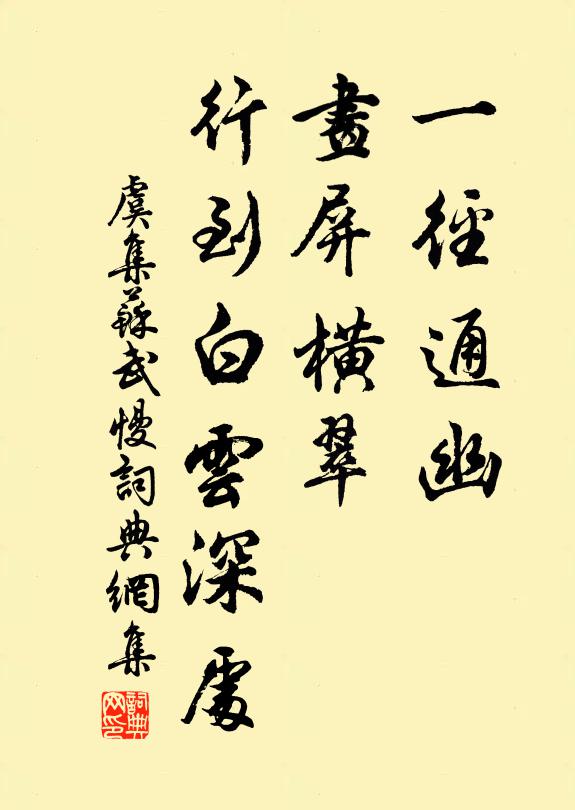 一徑通幽
畫屏橫翠
行到白雲深處
虞集蘇武慢詞典網集
詞典網印